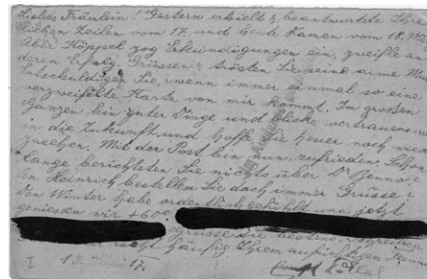 Liebes Fräulein! Gestern erhielt & beantwortete Ihre
lieben Zeilen vom 17. und heute kamen vom 18.
über Köppel zog Erkundigungen ein, zweifle an
deren Erfolg. Grüssen & trösten Sie seine arme
Entschuldigen Sie, wenn immer einmal so eine
verzweifelte Karte von mir kommt. Im grossen
ganzen bin guter Dinge und blicke vertrauensvoll
in die Zukunft und hoffe Sie heuer noch
zusehen. Mit der Post bin nun zufrieden. Schon
lange berichteten Sie nichts über Dr
An Heinrich bestellen Sie doch immer Grüsse
Den Winter habe ordentlich gefühlt und jetzt
geniesen wir +60°
recht häufig Ihrem aufrichtigen
I 13. 17.